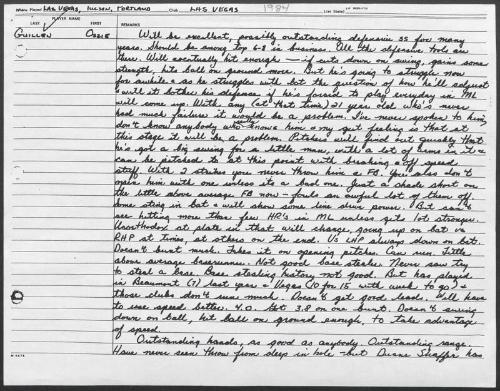 Where Played LAS VEGAS, TUCSON, PORTLAND Club LAS VEGAS 1984
LAST PLAYER NAME FIRST REMARKS
GUILLEN OSSIE Will be excellent, possibly outstanding defensive SS for many
years. Should be among top 6-8 in business. All the defensive tools are
there. Will eventually hit enough — if cuts down on swing, gains some
strength, hits ball on ground more. But he's going to struggle now
for awhile & as he struggles with bat the question of how he'll adjust
& will it bother his defense if he's forced to play everyday in ML
will come up. With any (at that time) 21 year old who's never
had much failure it would be a problem. I've never spoken to him,
don't know anybody who really knows him & my gut feeling is that at
this stage it will be a problem. Pitchers will find out quickly that
he's got a big swing for a little man, with a lot of arms in it &
can be pitched to at this point with breaking & off speed
stuff. With 2 strikes you never throw him a FB. You also don't
open him with one unless its a bad one. Just a shade short on
the little above average FB now - fouls an awful lot of them off.
Some sting in bat & will show some line drive power. But can't
see hitting more than few HR's in ML unless gets lot stronger.
Unorthodox at plate in that will change, going up on bat vs
RHP at times, at others on the end. Vs LHP always down on bat.
Doesn't bunt much. Fakes it on opening pitches. Can run little
above average baserunner. Not good base stealer. Never saw try
to steal a base. Base stealing history not good. But has played
in Beaumont (7) last year & Vegas (10 for 15 with week to go) &
those clubs don't run much. Doesn't get good leads. Will have
to use speed better. 4.0. Got 3.8 on one bunt. Doesn't swing
down on ball, hit ball on ground enough, to take advantage
of speed.
Outstanding hands, as good as anybody. Outstanding range.
Have never seen throw from deep in hole - but Duane Shaffer has